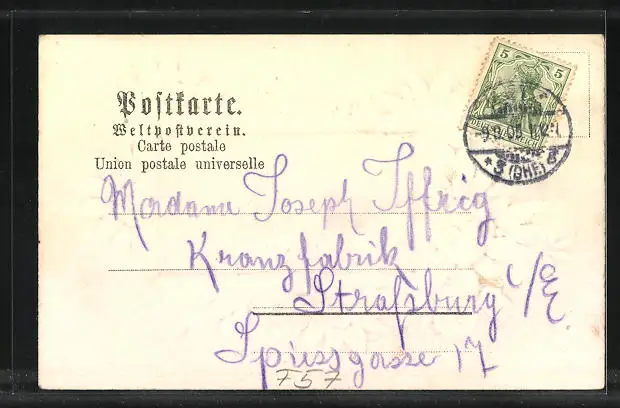 Postkarte.
Weltpostverein.
Carte postale
Union postale universelle
5 5
3 (BHF) 8
Madame Joseph Iffrig
Kranzfabrik
Strassburg i/E.
Spiessgasse 17
F57